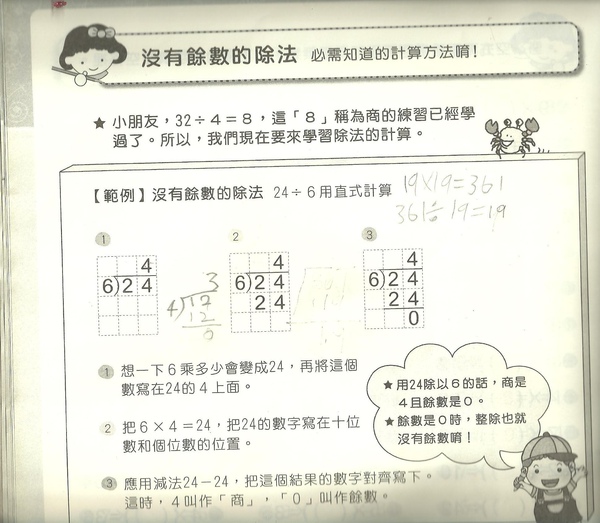 沒有餘數的除法 必需知道的計算方法唷!
★ 小朋友，32÷4＝8，這「8」稱為商的練習已經學
過了。所以，我們現在要來學習除法的計算。
【範例】沒有餘數的除法 24÷6用直式計算
19×19=361
361÷19=19
1 2 3
4
6)24
3
4)12
12
0
4
6)24
24
4
6)24
24
0
1 想一下6乘多少會變成24，再將這個
數寫在24的4上面。
2 把6×4＝24，把24的數字寫在十位
數和個位數的位置。
3 應用減法24－24，把這個結果的數字對齊寫下。
這時，4叫作「商」，「0」叫作餘數。
★用24除以6的話，商是
4且餘數是0。
★餘數是0時，整除也就
沒有餘數唷！